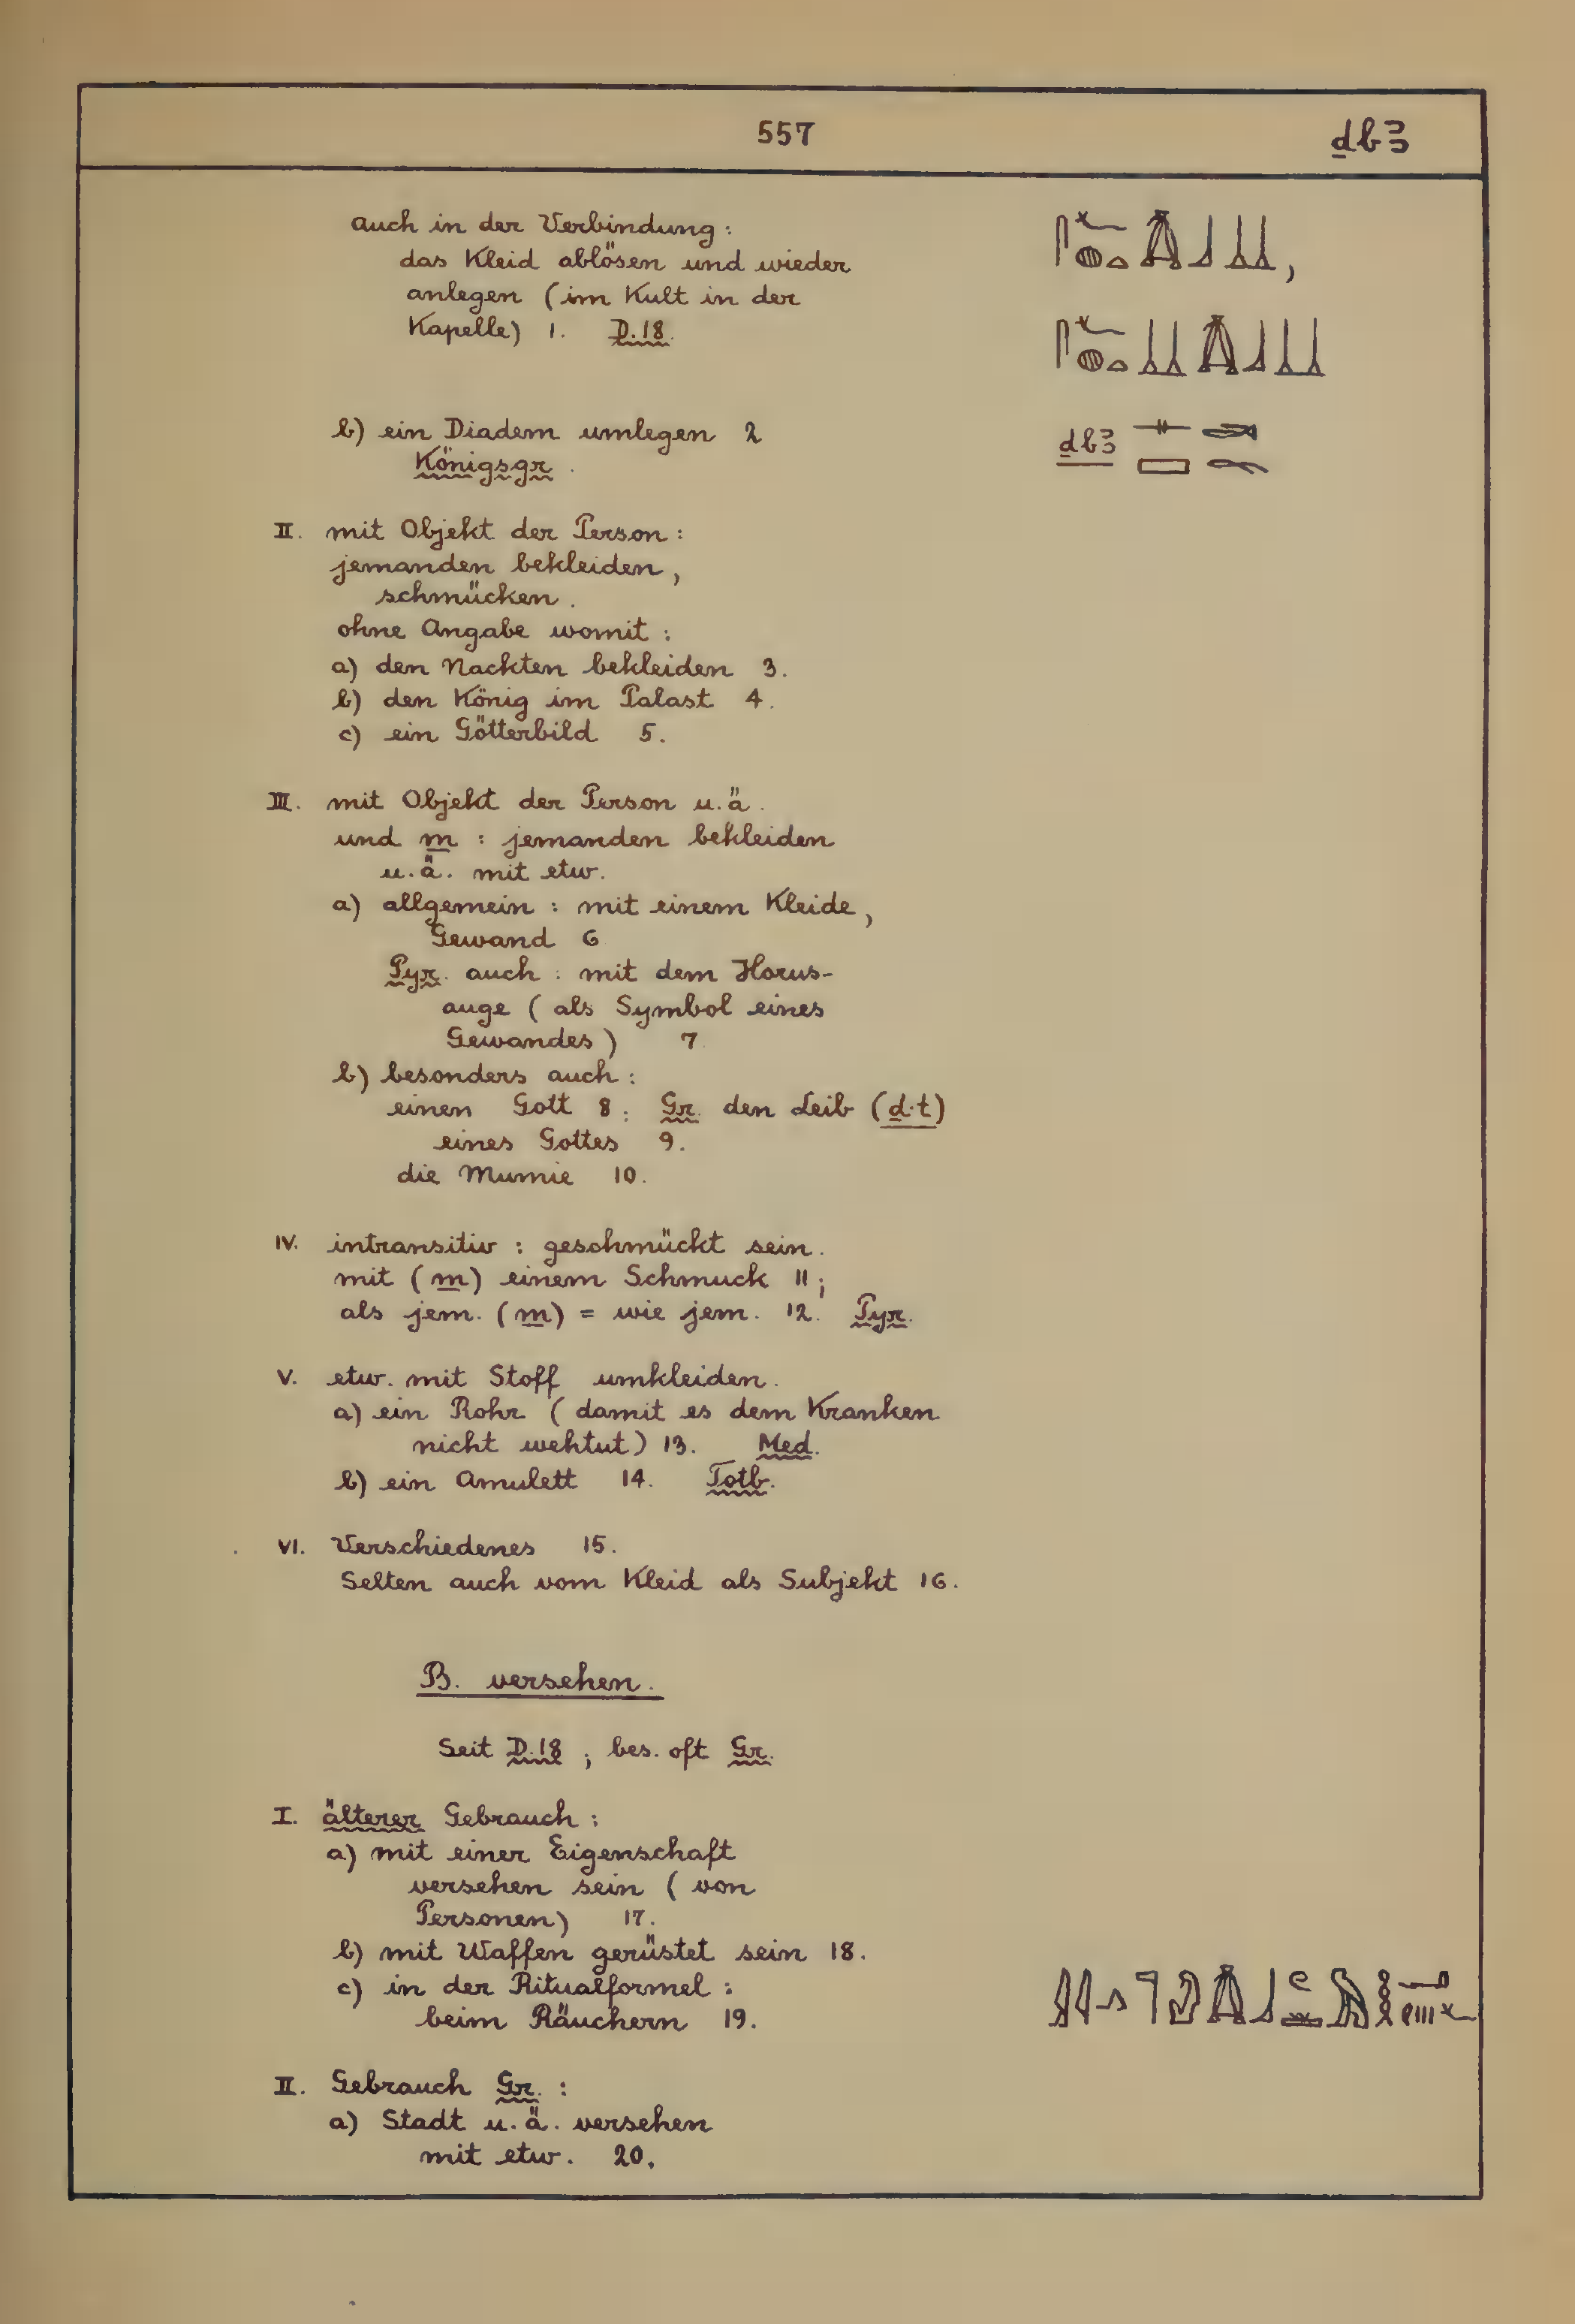 557 ḏbꜣ
auch in der Verbindung:
das Kleid ablösen und wieder
anlegen (im Kult in der
Kapelle) 1. D.18.
b) ein Diadem umlegen 2 ḏbꜣ
Königsgr.
II. mit Objekt der Person:
jemanden bekleiden,
schmücken.
ohne Angabe womit:
a) den Nackten bekleiden 3.
b) den König im Palast 4.
c) ein Götterbild 5.
III. mit Objekt der Person u.ä.
und m : jemanden bekleiden
u.ä. mit etw.
a) allgemein : mit einem Kleide,
Gewand 6
Pyr. auch : mit dem Horus-
auge (als Symbol eines
Gewandes) 7
b) besonders auch :
einen Gott 8; Gr. den Leib (ḏ.t)
eines Gottes 9.
die Mumie 10.
IV. intransitiv : geschmückt sein.
mit (m) einem Schmuck 11;
als jem. (m) = wie jem. 12. Pyr.
V. etw. mit Stoff umkleiden.
a) ein Rohr (damit es dem Kranken
nicht wehtut) 13. Med.
b) ein Amulett 14. Totb.
VI. Verschiedenes 15.
Selten auch vom Kleid als Subjekt 16.
B. versehen.
Seit D.18; bes. oft Gr.
I. älterer Gebrauch:
a) mit einer Eigenschaft
versehen sein (von
Personen) 17.
b) mit Waffen gerüstet sein 18.
c) in der Ritualformel:
beim Räuchern 19.
II. Gebrauch Gr. :
a) Stadt u.ä. versehen
mit etw. 20.